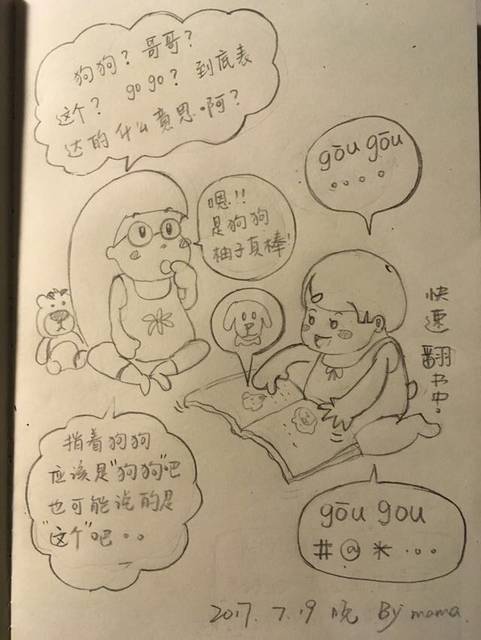 狗狗？哥哥？
这个？gogo？到底表
达的什么意思啊？
gōu gōu
。。。。
嗯!!
是狗狗
柚子真棒!
快速翻书中。
指着狗狗
应该是"狗狗"吧
也可能说的是
"这个"吧。。
gōu gou
#@*。。。
2017.7.19 晚 By mama.